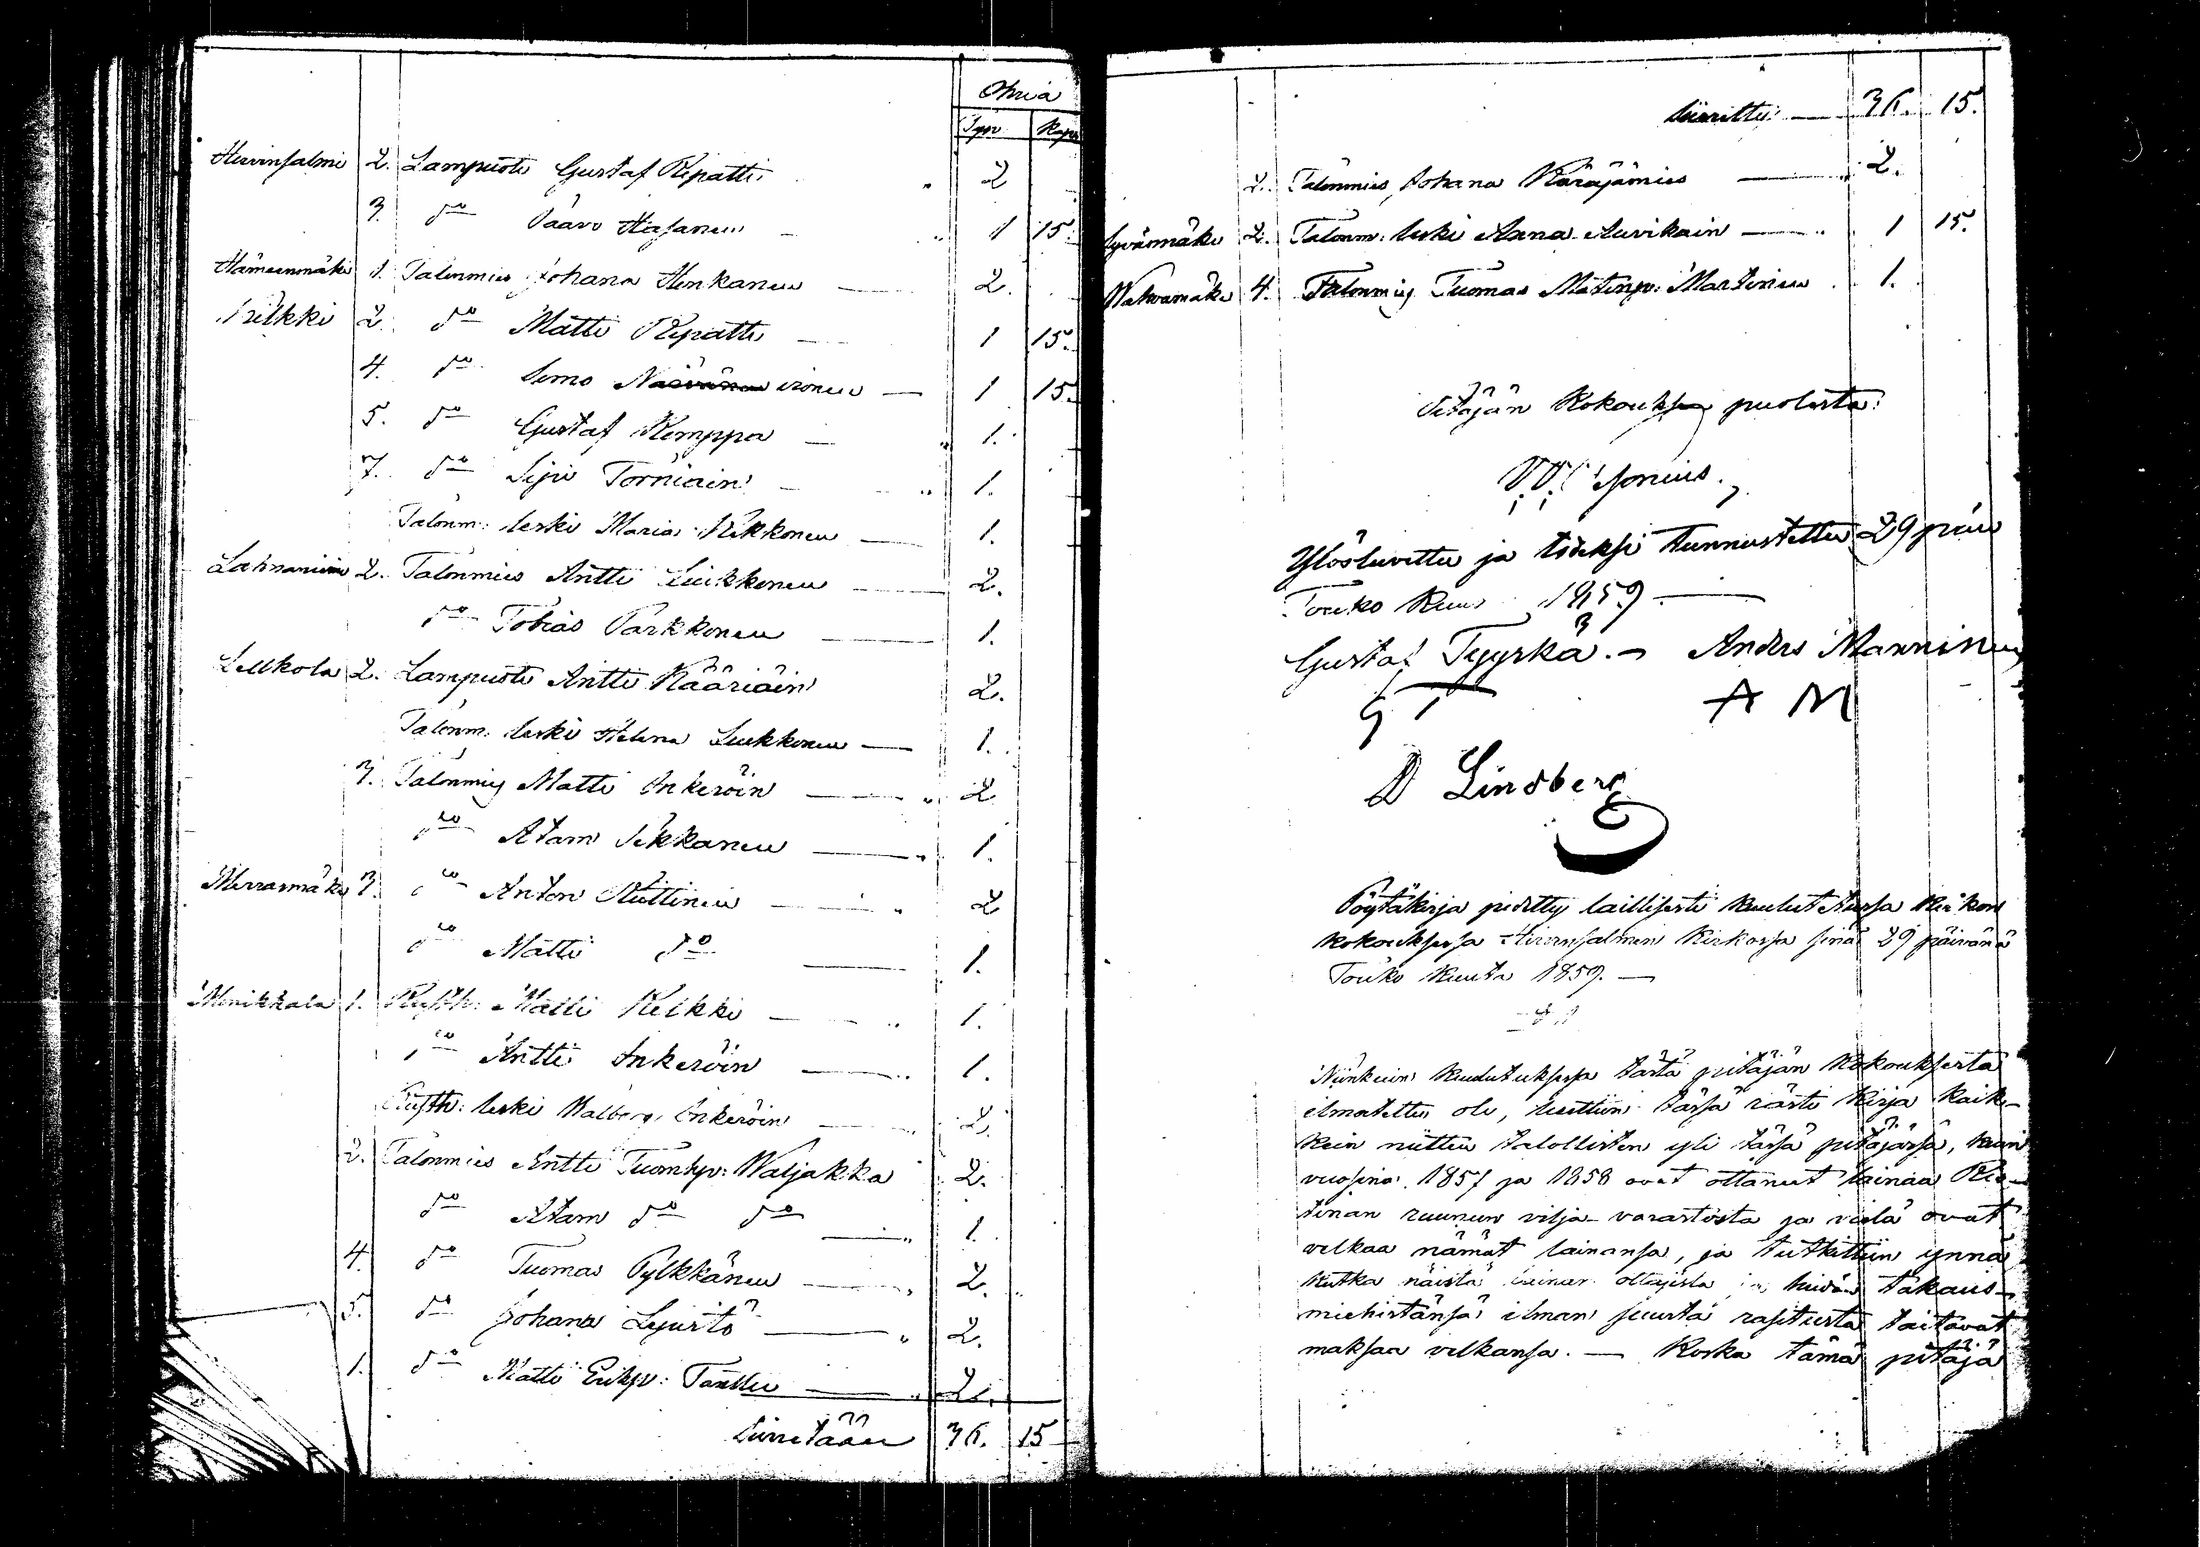 Ohria
Tynr Kapp
Hirvensalmi 2. Lampuoti Gustaf Ripatti 2
3. do Paavo Hasanen 1 15.
Hämeenmäki 1. Talonmies Johana Henkanen 2.
Kilkki 2. do Matti Ripatti 1 15.
4. do Simo 1 15.
5. do Gustaf Kemppa 1.
7. do Torniain 1.
Talonm: leski Maria Kekkonen 1.
Lahnaniemi 2. Talonmies Antti Liukkonen 2.
do Tobias Parkkonen 1.
Lelkola 2. Lampuoti Antti Kääriäin 2.
Talonm. leski Helena Liukkonen 1.
3. Talonmies Matti Inkeröin 2
do Atam Sikkanen 1.
Merrasmäki 3. do Anton Auttinen 2
do Matti do 1.
Monikkala 1. Rusth: Matti Kelkki 1.
do Antti Inkeröin 1.
Rusth: leski Walborg Inkeröin 2.
2. Talonmies Antti Tuomhp: Waljakka 2.
do Atam do do 1.
4. do Tuomas Pylkkänen 2.
5. do Johana Lyijstö 2.
1. do Matti Erikp: Tanttu 2.
Siirretään 36. 15
Siirretty 36. 15.
2. Talonmies Johana Käräjämies 2.
Syvänmäki 2. Talonm: leski Anna Auvikain 1 15.
Wahvamäki 4. Talonmies Tuomas Matinp: Martinen 1.
Pitäjän Kokouksen puolesta:
Ylösluvettu ja todeksi tunnustettu 29 päiv
Touko Kuus 1859.
Gustaf Tyyskä. Anders Manninen
G T A M
D Lindberg
Pöytäkirja pidetty laillisesti kuulutetussa kirkon
kokouksessa Hirvensalmen kirkossa sinä 29 päivänä
Touko kuuta 1859.
§ 1
Niinkuin kuulutuksessa tästä pitäjän kokouksesta
ilmoitettu oli, luettiin tässä rästi kirja kaik-
kein niitten talollisten yli tässä pitäjässä, kuin
vuosina 1857 ja 1858 ovat ottaneet lainaa Ris-
tinan ruunun vilja-varastosta ja vielä ovat
velkaa nämät lainansa, ja tutkittiin ynnä
kutka näistä lainan ottajista ja heidän takaus-
miehistänsä ilman suurta rasitusta taitavat
maksaa velkansa. — Koska tämä pitäjä